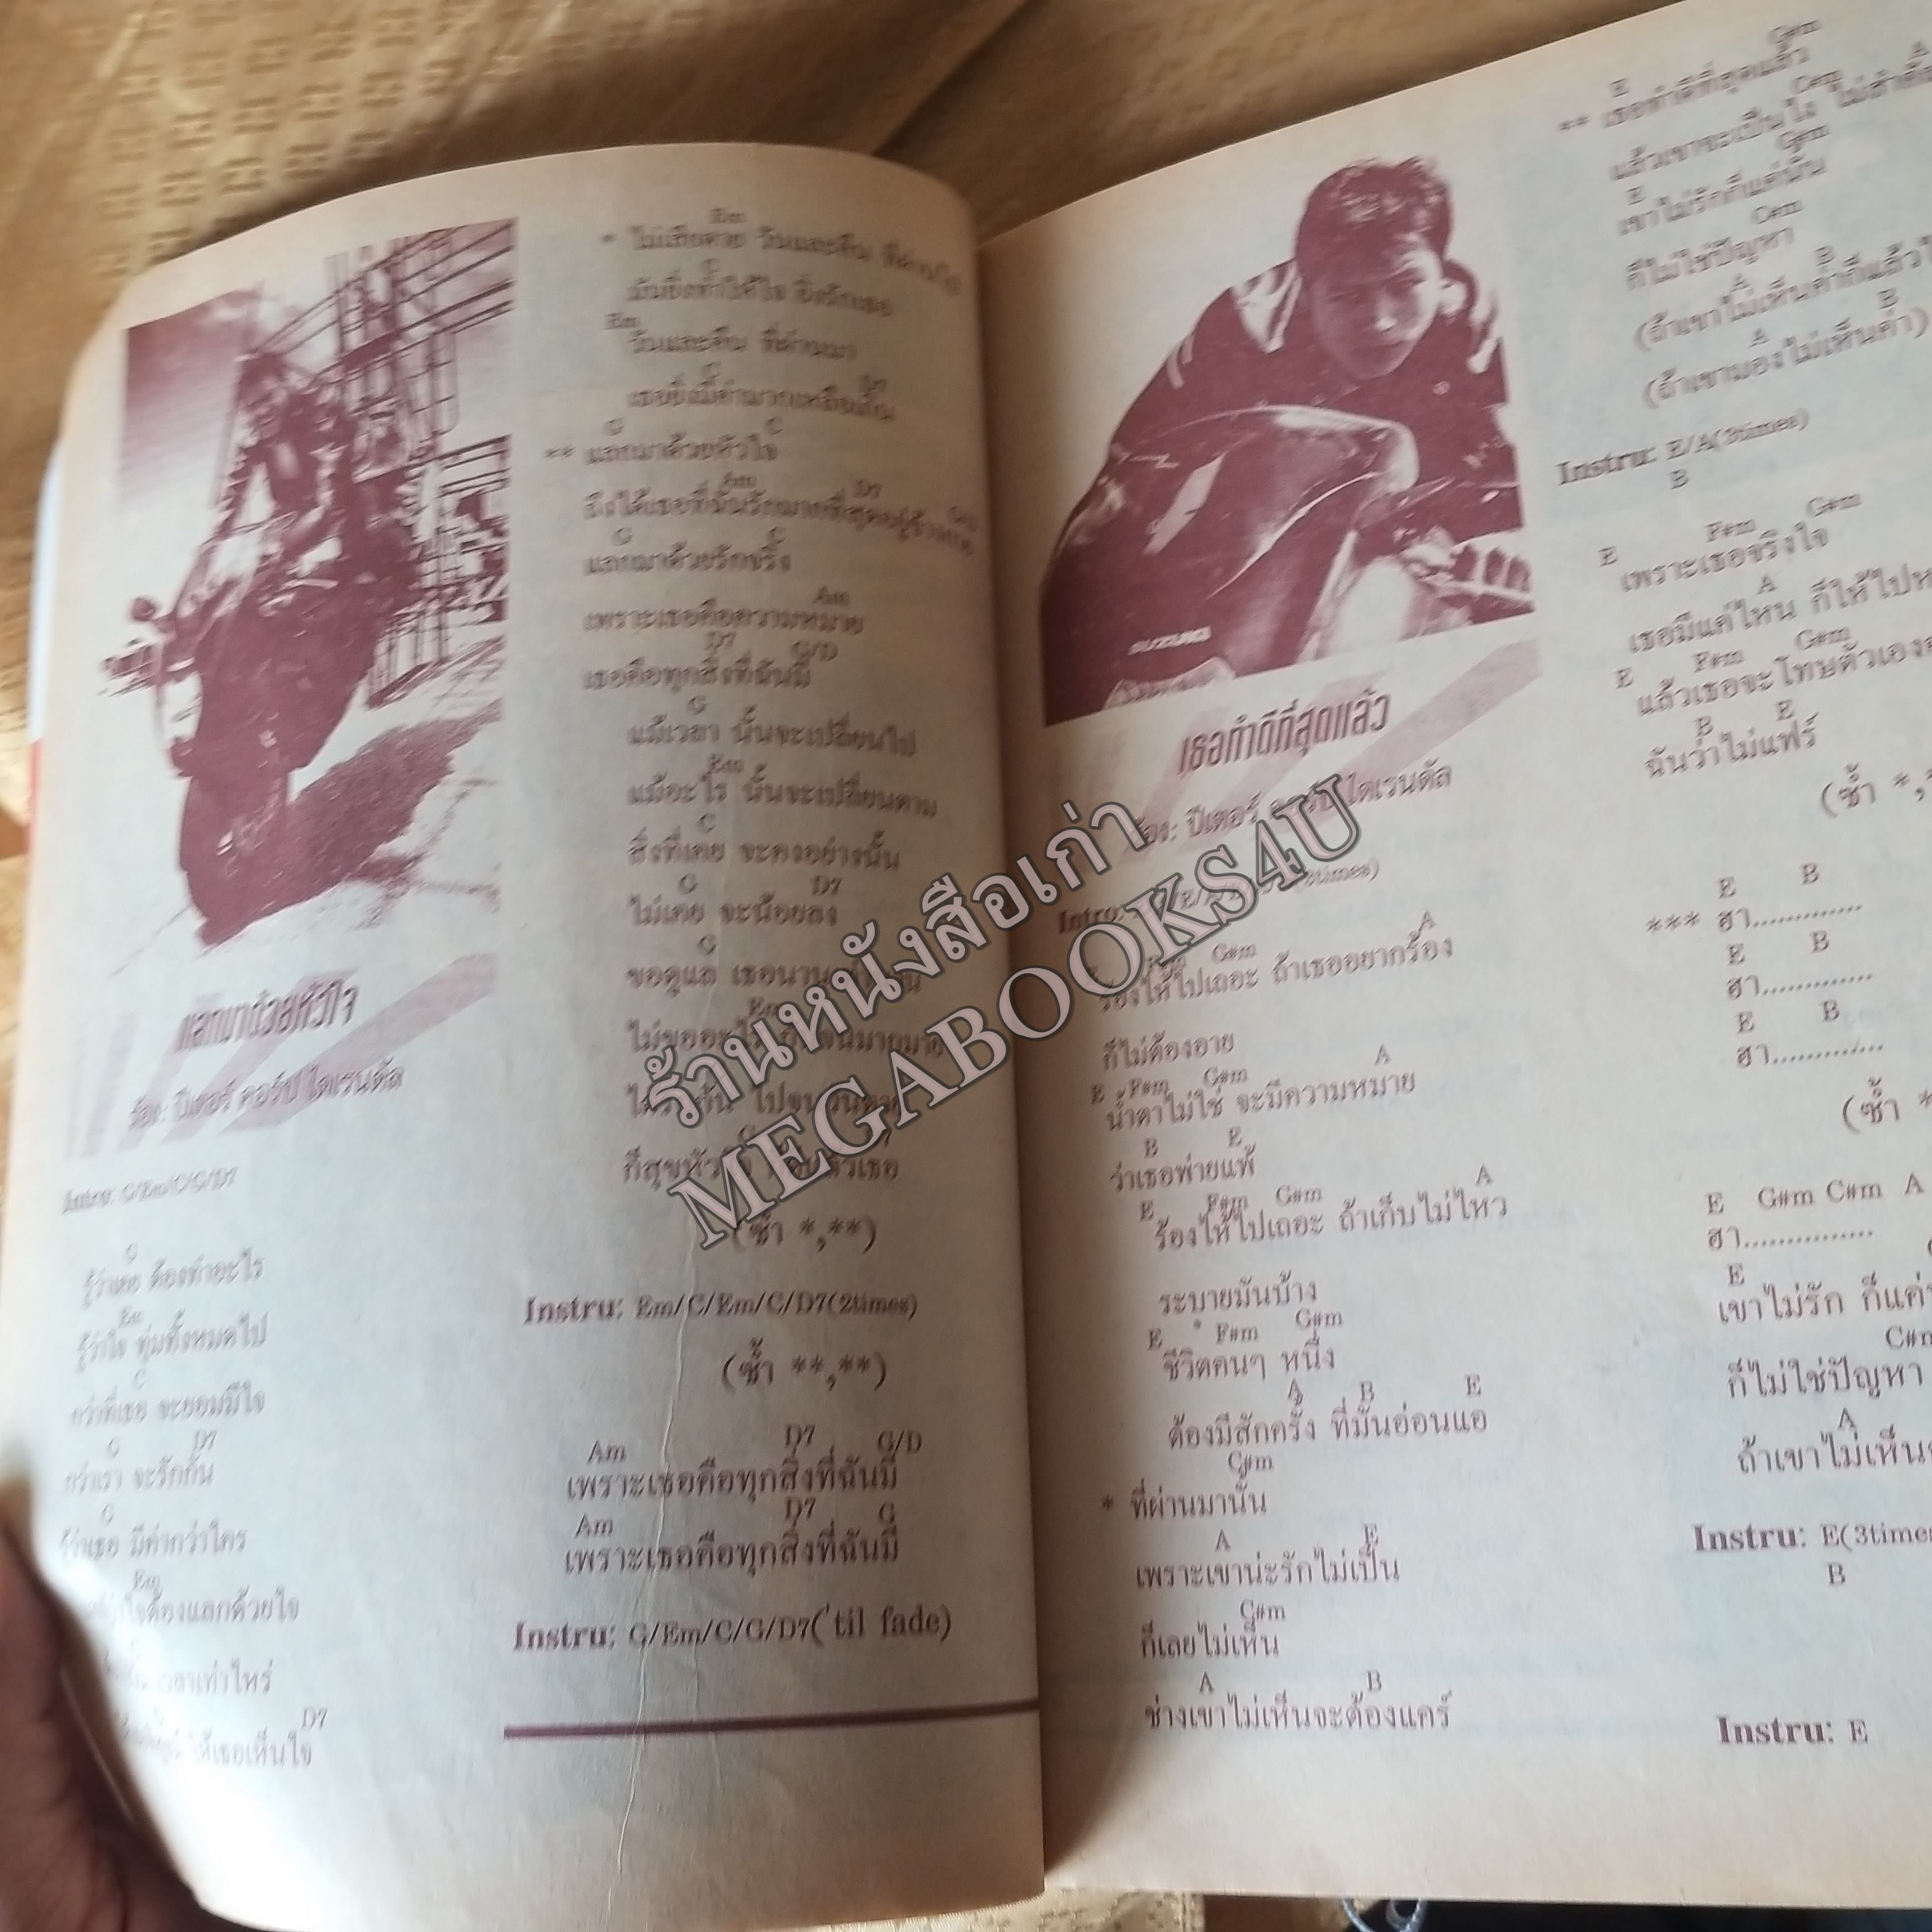 แลกมาด้วยหัวใจ
ร้อง: ปีเตอร์ คอร์ป ไดเรนดัล
Intro: G/Em/C/G/D7
G
รู้ว่าเคย ต้องทำอะไร
Em
รู้ว่าใจ ทุ่มทั้งหมดไป
C
กว่าที่เธอ จะยอมมีใจ
G D7
กว่าเรา จะรักกัน
G
รู้ว่าเธอ มีค่ากว่าใคร
Em
ใจต้องแลกด้วยใจ
เวลาเท่าไหร่
D7
ให้เธอเห็นใจ
Em
* ไม่เสียดาย วันและคืน ที่ผ่านไป
C
มันยิ่งทำให้ใจ ยิ่งรักเธอ
Em
วันและคืน ที่ผ่านมา
C D7
เธอยิ่งมีค่ามากเหลือเกิน
G C
** แลกมาด้วยหัวใจ
Am D7 G/D
ถึงได้เธอที่ฉันรักมากที่สุดอยู่ข้างกาย
G C
แลกมาด้วยรักจริง
Am
เพราะเธอคือความหมาย
D7 G/D
เธอคือทุกสิ่งที่ฉันมี
G
แม้เวลา นั้นจะเปลี่ยนไป
Em
แม้อะไร นั้นจะเปลี่ยนตาม
C
สิ่งที่เคย จะคงอย่างนั้น
G D7
ไม่เคย จะน้อยลง
G
ขอดูแล เธอนาน
Em
ไม่ขออะไร
ที่สุขหัวใจ
(ซ้ำ *,**)
Instru: Em/C/Em/C/D7(2times)
(ซ้ำ **,**)
Am D7 G/D
เพราะเธอคือทุกสิ่งที่ฉันมี
Am D7 G
เพราะเธอคือทุกสิ่งที่ฉันมี
Instru; G/Em/C/G/D7('til fade)
SUZUKI
เธอทำดีที่สุดแล้ว
ร้อง: ปีเตอร์ คอร์ป ไดเรนดัล
Intro:
F#m G#m A
ร้องไห้ไปเถอะ ถ้าเธออยากร้อง
ก็ไม่ต้องอาย
E F#m G#m A
น้ำตาไม่ใช่ จะมีความหมาย
B E
ว่าเธอพ่ายแพ้
E F#m G#m A
ร้องไห้ไปเถอะ ถ้าเก็บไม่ไหว
ระบายมันบ้าง
E F#m G#m
ชีวิตคนๆ หนึ่ง
A B E
ต้องมีสักครั้ง ที่มันอ่อนแอ
C#m
* ที่ผ่านมานั้น
A E
เพราะเขาน่ะรักไม่เป็น
C#m
ก็เลยไม่เห็น
A B
ช่างเขาไม่เห็นจะต้องแคร์
E G#m
** เธอทำดีที่สุดแล้ว
C#m A
แล้วเขาจะเป็นไง ไม่สำคัญ
E G#m
เขาไม่รักก็แค่นั้น
C#m
ก็ไม่ใช่ปัญหา
A B
(ถ้าเขาไม่เห็นค่าก็แล้วไป
A B
(ถ้าเขามองไม่เห็นค่า)
Instru: E/A(3times)
B
E F#m G#m
เพราะเธอจริงใจ
A
เธอมีแค่ไหน ก็ให้ไป
E F#m G#m
แล้วเธอจะโทษตัวเอง
B E
ฉันว่าไม่แฟร์
(ซ้ำ *,
E B
*** ฮา.............
E B
ฮา.............
E B
ฮา.............
(ซ้ำ *
E G#m C#m A
ฮา...............
E
เขาไม่รัก ก็แค่
C#m
ก็ไม่ใช่ปัญหา
A
ถ้าเขาไม่เห็น
Instru: E(3times
B
Instru: E
ร้านหนังสือเก่า
MEGABOOKS4U